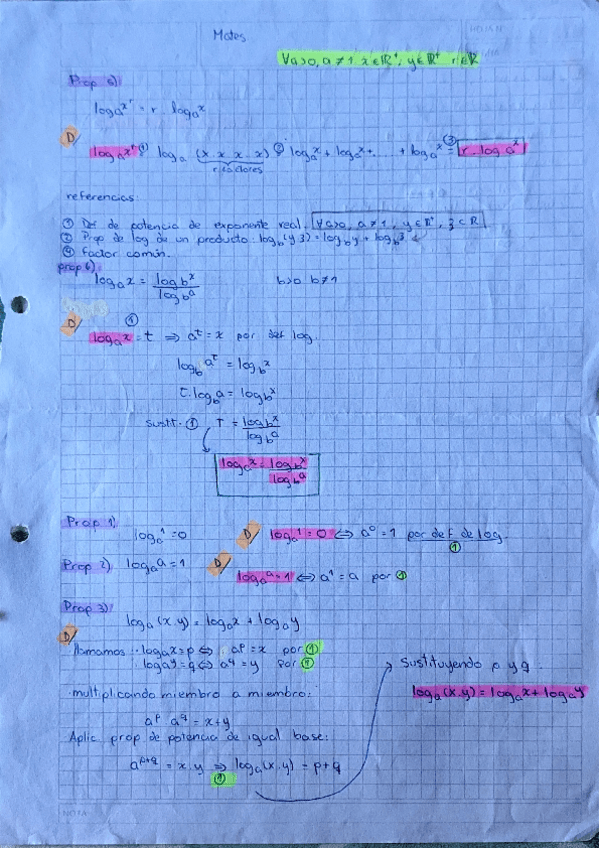 Mates
∀a>0, a≠1 x∈ℝ⁺, y∈ℝ⁺ r∈ℝ
Prop 5)
log_a x^r = r · log_a x
D/
log_a x^r ① log_a (x · x · x · x) ② log_a x + log_a x + ..... + log_a x ③ = r · log_a x
r factores
referencias:
① Def de potencia de exponente real. ∀a>0, a≠1, y∈ℝ⁺, z∈ℝ
② Prop de log de un producto: log_b (y z) = log_b y + log_b z
factor común.
prop 6)
log_a x = log_b x / log_b a b>0 b≠1
D/ ①
log_a x = t ⇒ a^t = x por def log.
log_b a^t = log_b x
t · log_b a = log_b x
sustt. ① T = log_b x / log_b a
log_a x = log_b x / log_b a
Prop 1)
log_a 1 = 0 D/ log_a 1 = 0 ⇔ a^0 = 1 por def. de log.
①
Prop 2) log_a a = 1 D/
log_a a = 1 ⇔ a^1 = a por ①
Prop 3)
log_a (x y) = log_a x + log_a y
D/
llamamos: · log_a x = p ⇔ a^p = x por ①
· log_a y = q ⇔ a^q = y por ①
· multiplicando miembro a miembro:
a^p a^q = x+y
Aplic prop de potencia de igual base:
a^{p+q} = x · y ⇒ log_a (x · y) = p+q
①
→ Sustituyendo p y q.
log_a (x · y) = log_a x + log_a y